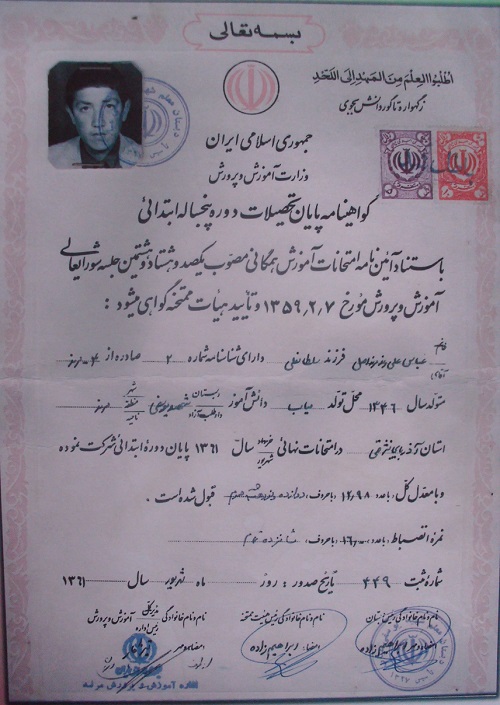 بسمه تعالی
اطلبوا العلم من المهد الی اللحد
ز گهواره تا گور دانش بجوی
جمهوری اسلامی ایران
وزارت آموزش و پرورش
گواهینامه پایان تحصیلات دوره پنجساله ابتدائی
باستناد آئین نامه امتحانات آموزش همگانی مصوب یکصد و هشتاد و هشتمین جلسه شورایعالی
آموزش و پرورش مورخ ۱۳۵۹،۲،۷ و تأیید هیأت ممتحنه گواهی میشود :
خانم
آقای عباس فرزند سلطانعلی دارای شناسنامه شماره ۲ صادره از
متولد سال ۱۳۴۶ محل تولد میاب دانش آموز دبستان شهر
داوطلب آزاد منطقه
ناحیه
استان در امتحانات نهائی خرداد سال ۱۳۶۱ پایان دورهٔ ابتدائی شرکت نموده
شهریور
و با معدل کل: بعدد ۱۲،۹۸ باحروف: قبول شده است .
نمره انضباط: بعدد ۱۶،۰۰ باحروف: شانزده تمام
شمارهٔ ثبت ۴۴۹ تاریخ صدور : روز ماه شهریور سال ۱۳۶۱
نام و نام خانوادگی رئیس دبستان
نام و نام خانوادگی رئیس هیئت ممتحنه
نام و نام خانوادگی مدیر کل آموزش و پرورش
رئیس اداره
امضاء و مهر
امضاء: ابراهیم زاده
امضاء و مهر
اداره آموزش و پرورش مرند